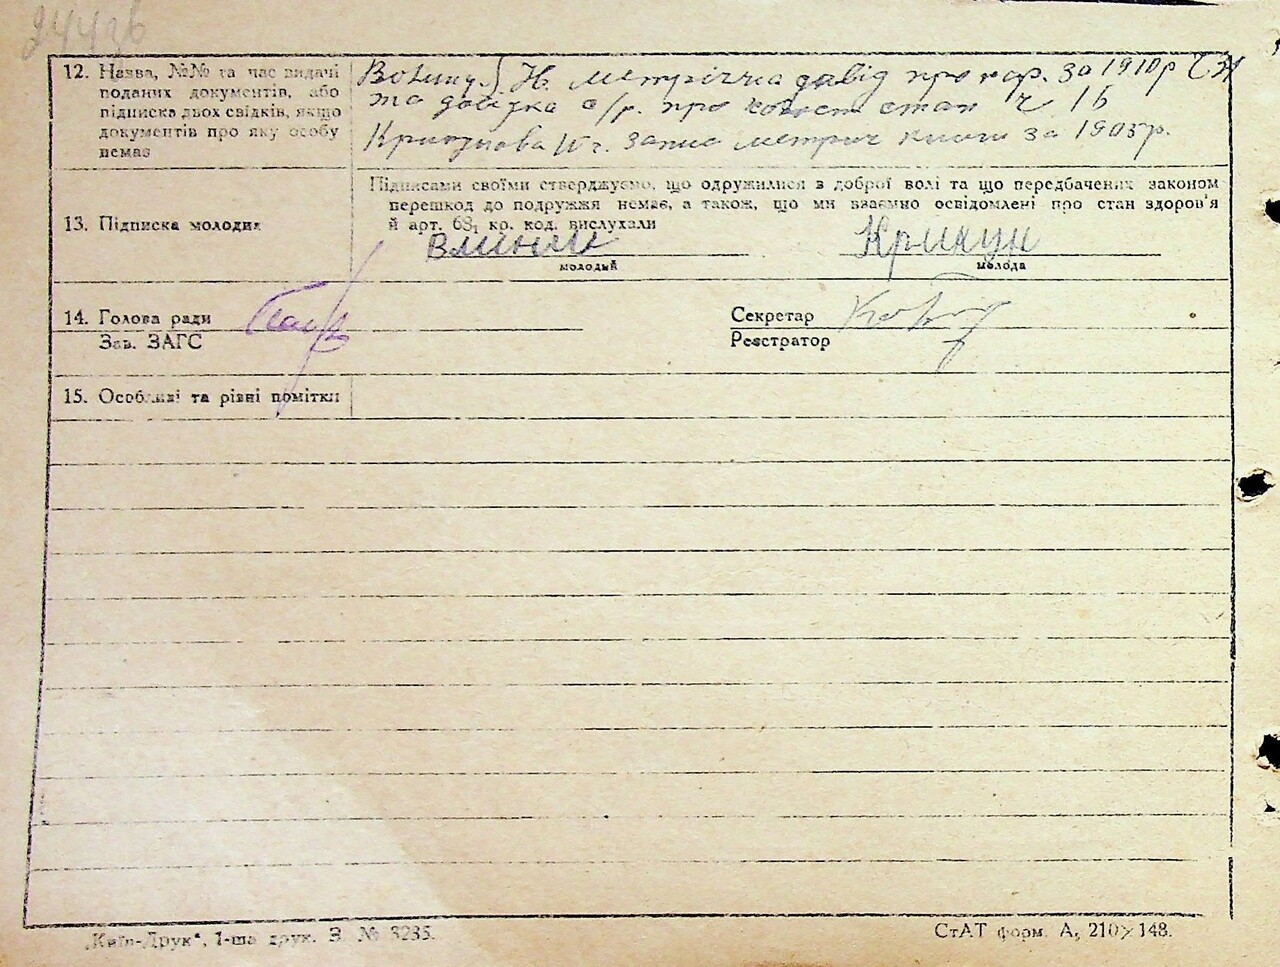 12. Назва, №№ та час видачі поданих документів, або підписка двох свідків, якщо документів про яку особу немає
Н. метрична довід про за 1910 р
та довідка с/р. про стан Ч 16
запис метрич книги за 1905 р.
13. Підписка молодих
Підписами своїми стверджуємо, що одружилися з доброї волі та що передбачених законом
перешкод до подружжя немає, а також, що ми взаємно освідомлені про стан здоров'я
й арт. 68₁ кр. код. вислухали
Крикун
молодий молода
14. Голова ради Секретар
Зав. ЗАГС Реєстратор
15. Особливі та різні помітки
„Київ-Друк“, 1-ша друк. З. № 3235. СтАТ форм. А₅ 210×148.